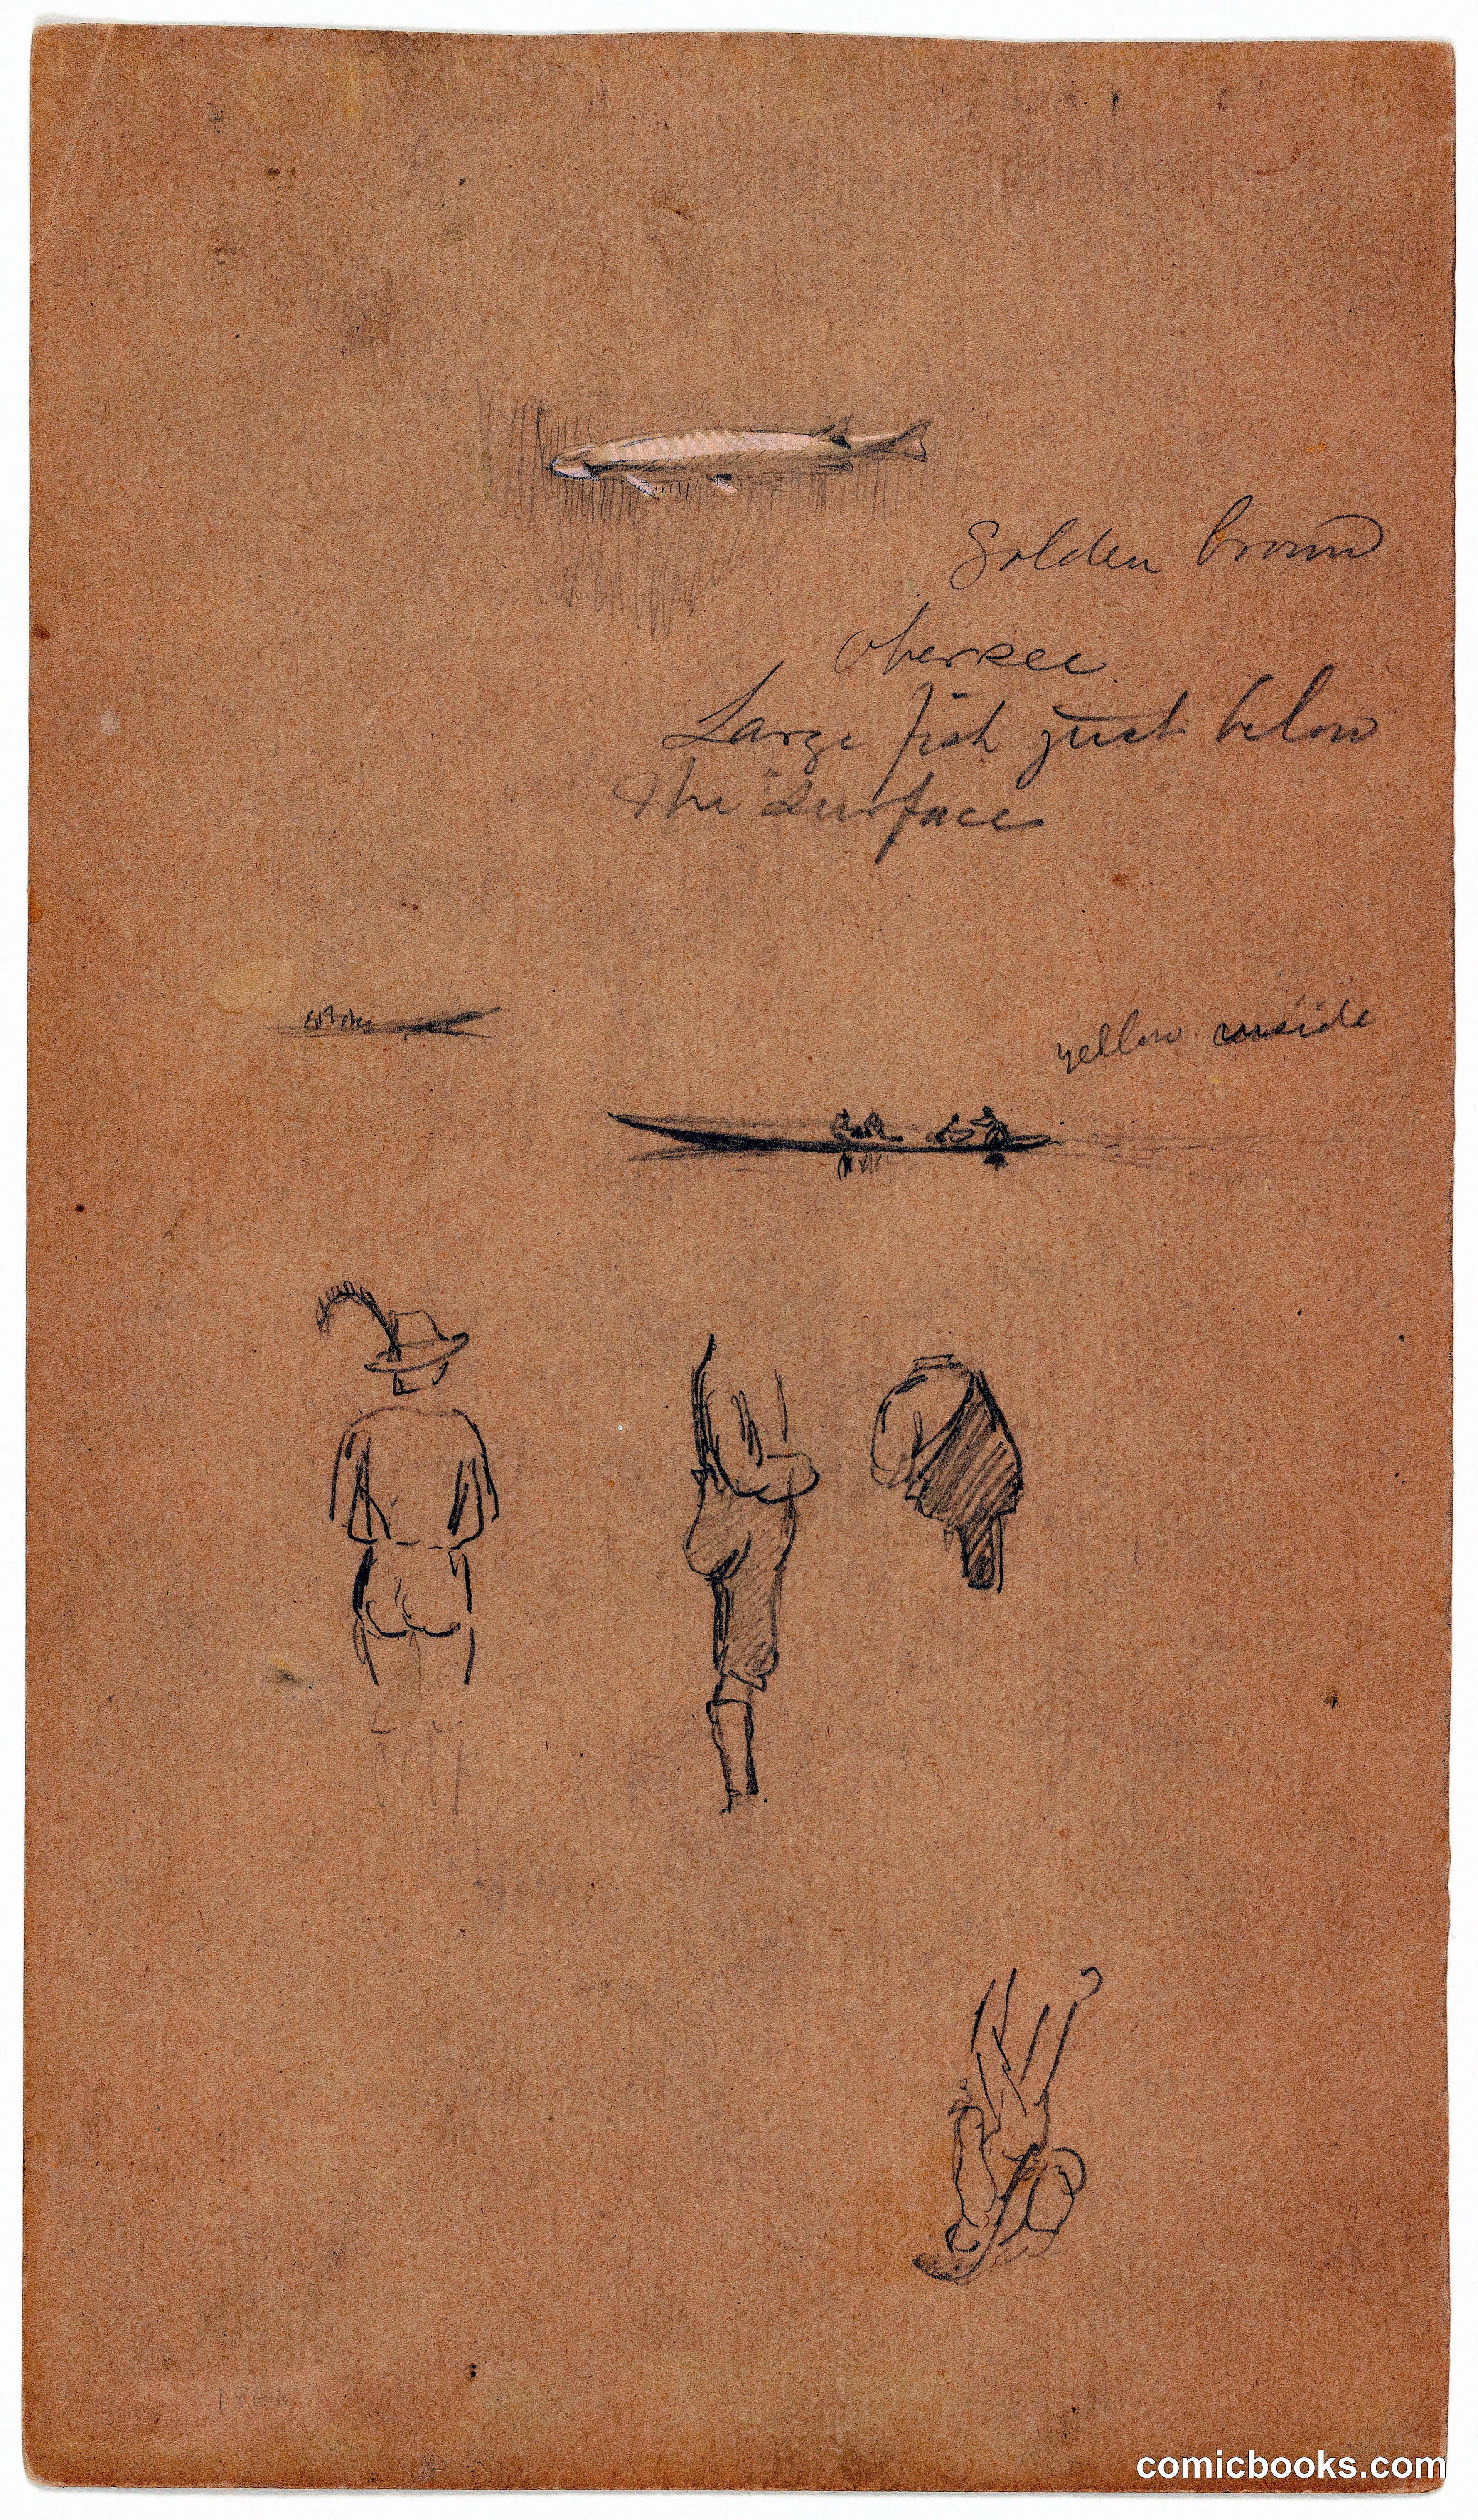 Golden brown
Obersee
Large fish just below
the surface
yellow inside
comicbooks.com